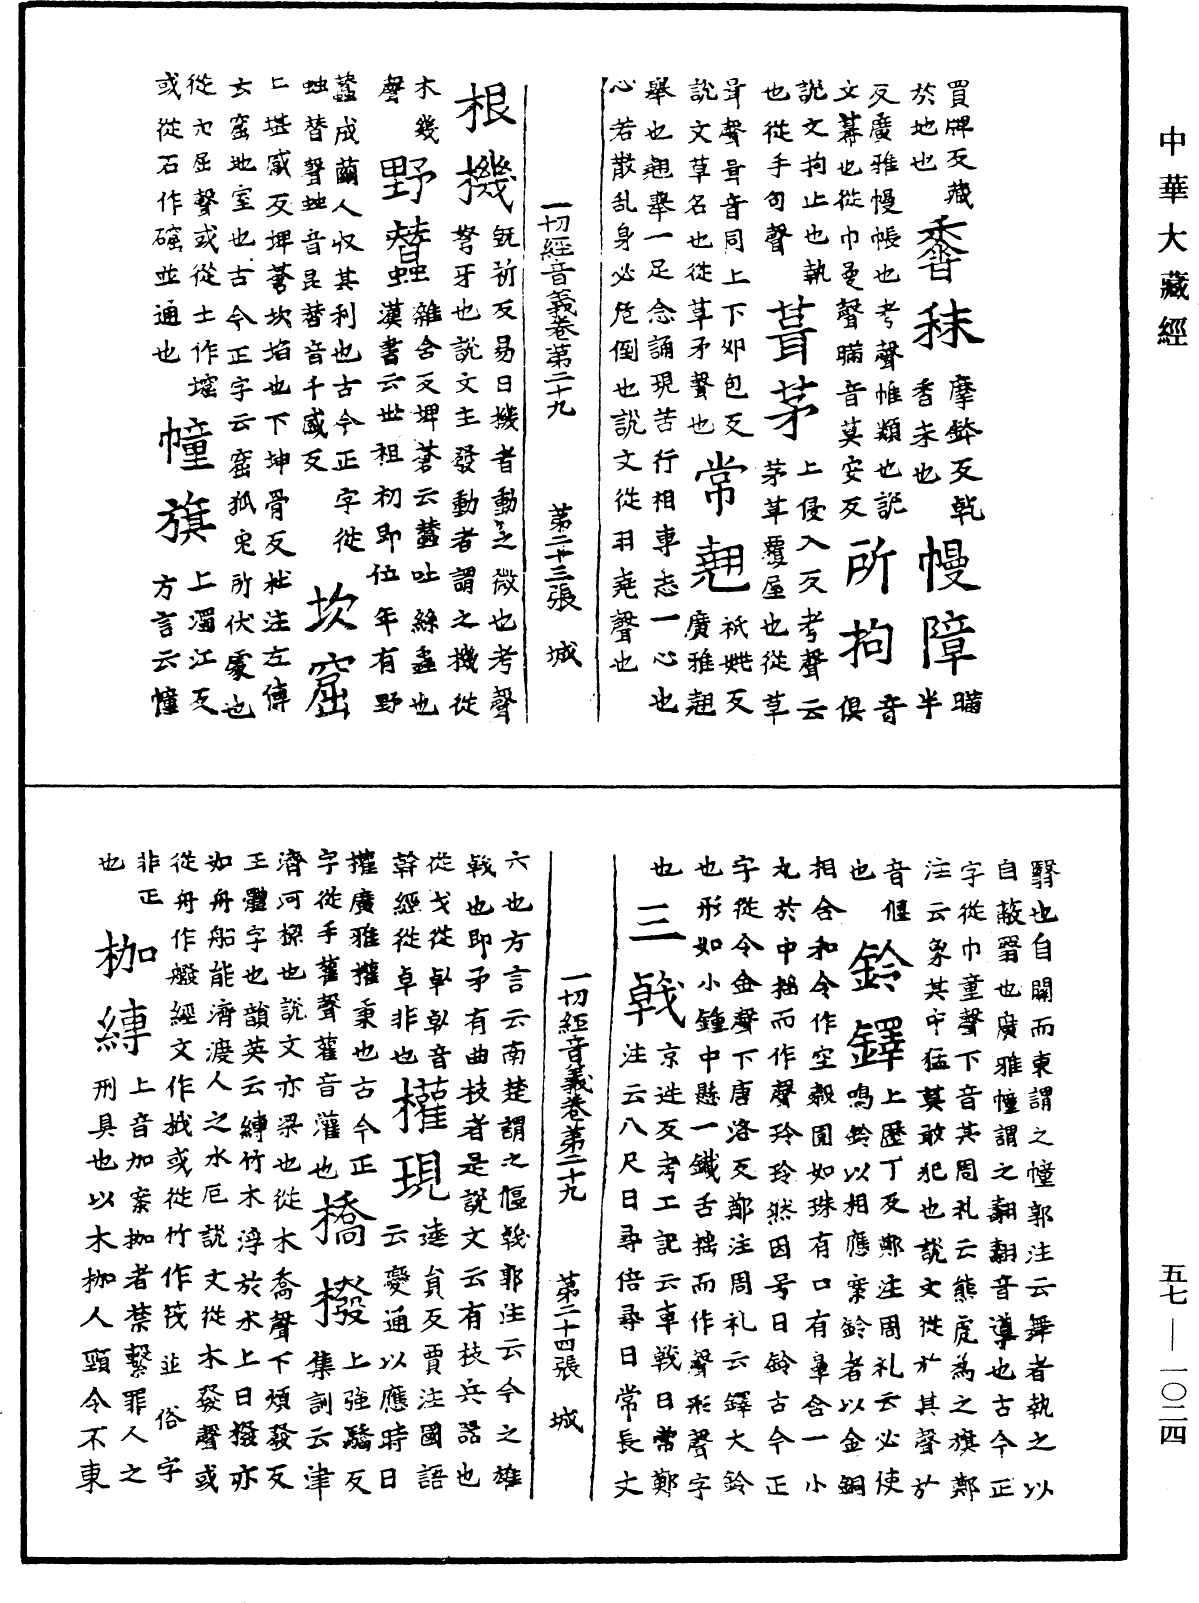 中華大藏經
買牌反藏
於地也
香秣
摩鉢反乾
香末也
幔障
瞞半
反廣雅幔帳也考聲帷類也説
文幕也從巾曼聲瞞音莫安反
所拘
音俱
説文拘止也執
也從手句聲
葺茅
上侵入反考聲云
茅茸覆屋也從草
咠聲咠音同上下卯包反
説文草名也從草矛聲也
常翹
祇姚反
廣雅翹
舉也翹舉一足念誦現苦行相專志一心也
心若散乱身必危倒也說文從羽堯聲也
一切經音義卷第二十九 第二十三張 城
根機
既祈反易曰機者動之微也考聲
弩牙也說文主發動者謂之機從
木幾
聲
野蠶
雜含反埤蒼云蠶吐絲蟲也
漢書云世祖初即位年有野
蠶成繭人収其利也古今正字從
䖵朁聲䖵音昆朁音千感反
坎窟
上堪感反埤蒼坎埳也下坤骨反杜注左傳
云窟地室也古今正字云窟狐兔所伏處也
從穴屈聲或從土作堀
或從石作並通也
幢旗
上濁江反
方言云幢
翳也自關而東謂之幢郭注云舞者執之以
自蔽翳也廣雅幢謂之翿翿音導也古今正
字從巾童聲下音其周礼云熊虎為之旗鄭
注云象其中猛莫敢犯也說文從㫃其聲㫃
音偃
也
鈴鐸
上歷丁反鄭注周礼云必使
鳴鈴以相應案鈴者以金銅
相合和令作空㲉圓如珠有口有鼻含一小
丸於中搖而作聲玲玲然因号曰鈴古今正
字從令金聲下唐洛反鄭注周礼云鐸大鈴
也形如小鐘中懸一鐵舌搖而作聲形聲字
也
三戟
京逆反考工記云車戟曰常鄭
注云八尺曰尋倍尋曰常長丈
一切經音義卷第二十九 第二十四張 城
六也方言云南楚謂之偃戟郭注云今之雄
戟也即矛有曲枝者是説文云有枝兵器也
從戈從倝倝音
幹經從卓非也
權現
逵員反賈注國語
云變通以應時曰
權廣雅權秉也古今正
字從手雚聲雚音灌也
橋橃
上強驕反
集訓云津
濟河梁也說文亦梁也從木喬聲下煩發反
王體字也韻英云縛竹木浮於水上曰橃亦
如舟船能濟渡人之水厄説文從木發聲或
從舟作經文作栰或從竹作筏並俗字
非正
也
枷縛
上音加案枷者禁繫罪人之
刑具也以木枷人頸令不東
五七—一〇二四